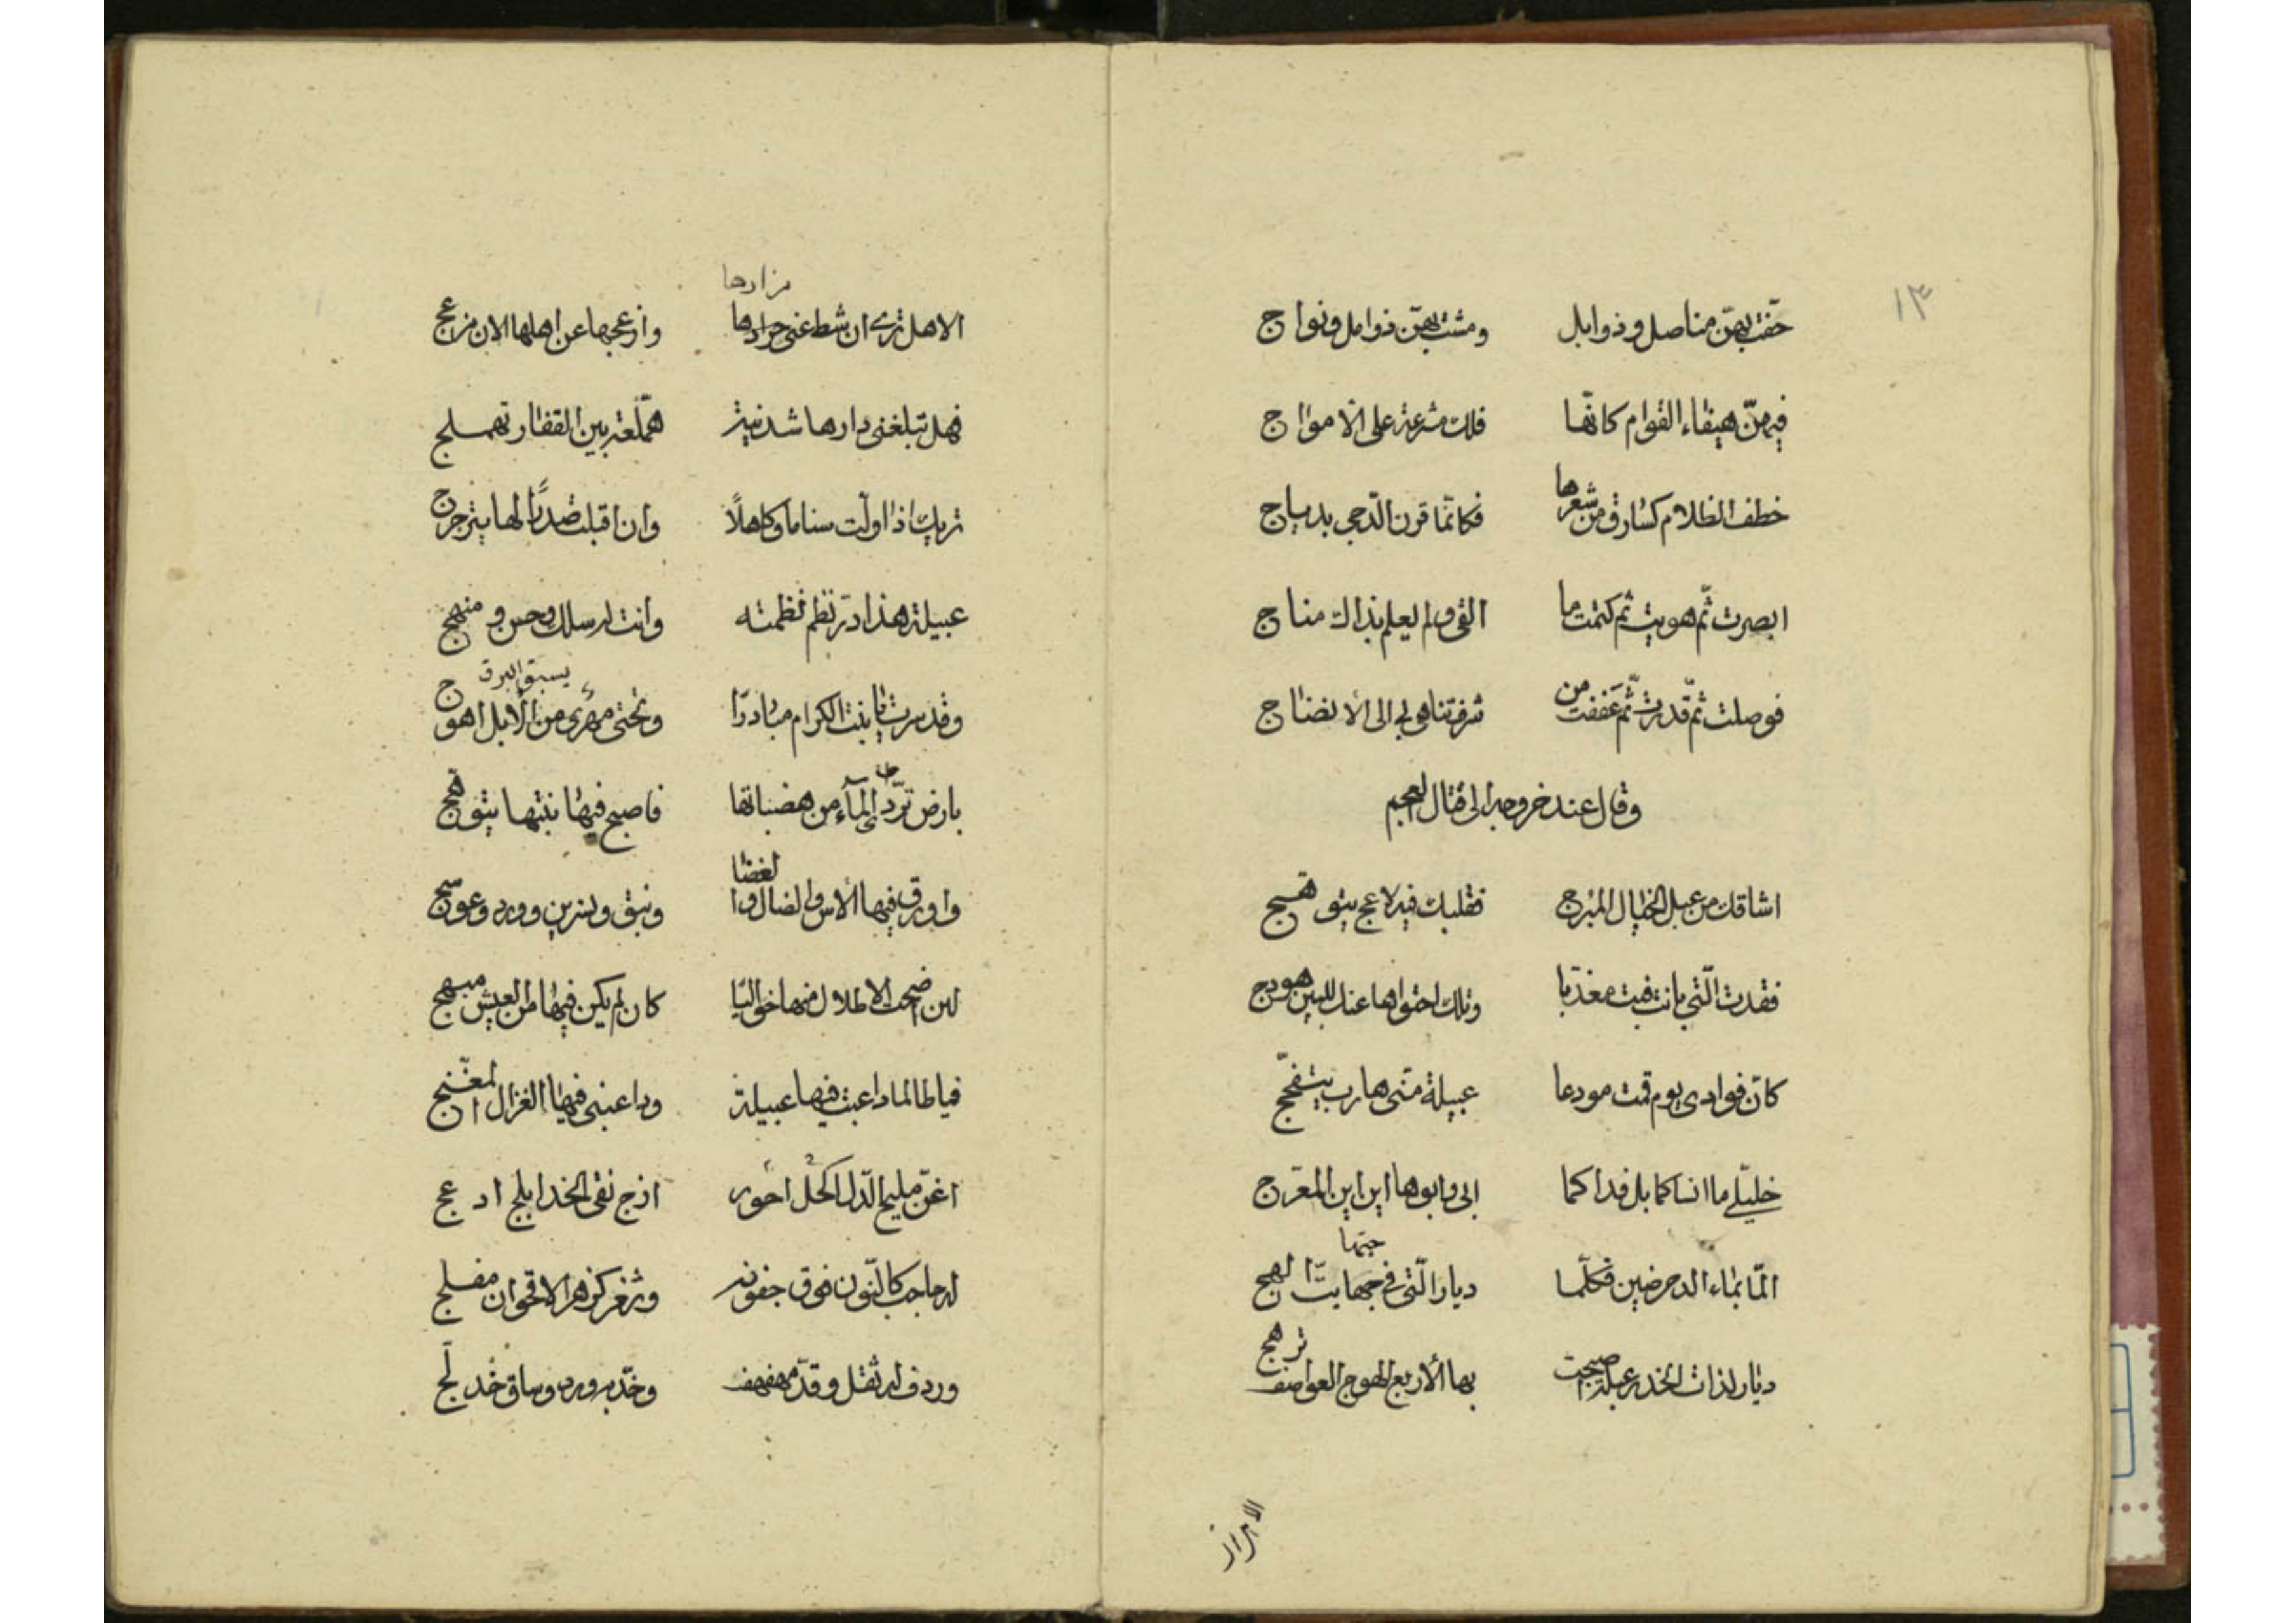 ١٣
حفّت بهنّ مناصل وذوابل ومشت بهنّ ذوامل ونواج
فيهنّ هيفاء القوام كانّها فلك مشرعة على الامواج
خطف الظلام كسارق من شعرها فكانّما قرن الدّجى بدياج
ابصرت ثمّ هويت ثم كتمت ما القى ولم يعلم بذاك مناج
فوصلت ثمّ قدرت ثمّ عففت من شرف تناهى بى الى الأنضاج
وقال عند خروجه الى قتال العجم
اشاقك من عبل الخيال المبرج فقلبك فيه لاعج يتوهّج
فقدت الّتي بانت فبت معذبا وتلك احتواها عنك للبين هودج
كانّ فوادى يوم قمت مودعا عبيلة منّى هارب يتفحّج
خليلي ما انساكما بل فداكما ابى وابوها اين اين المعرّج
المّا بماء الدحرضين فكلّما ديار الّتي فى حبها بتّ الهج
حبّها
ديار لذات الخدر عبلة اصبحت بها الأربع الهوج العواصف ترهج
الا هل ترى ان
مزارها
الا هل ترى ان شط عنى جرادها وازعجها عن اهلها الان مزعج
فهل تبلغنى دارها شدنية همّلعة بين القفار تهملج
تريك اذا اولّت سناما وكاهلًا وان اقبلت صدرًا لها يترجرج
عبيلة هذا درّ نظم نظمته وانت له سلك وحسن ومنهج
يسبق البرق
وقد سرت يا بنت الكرام مبادرًا وتحتى مهرى من الأبل اهوج
بارض تردّى المآء من هضباتها فاصبح فيها نبتها يتوهّج
واورق فيها الأس والضال والغضا ونبق ونسرين وورد وعوسج
لئن اضحت الاطلال منها خواليا كان لم يكن فيها من العيش مبهج
فيا طالما داعبت فيها عبيلة وداعبنى فيها الغزال المغنّج
اغنّ مليح الدّل اكحل احور ازج نقى الخد ابلج ادعج
له حاجب كالنّون فوق جفونه وثغر كزهر الاقحوان مفلج
وردف له ثقل وقدّ مهفهف وخدّ به ورد وساق خدلّج